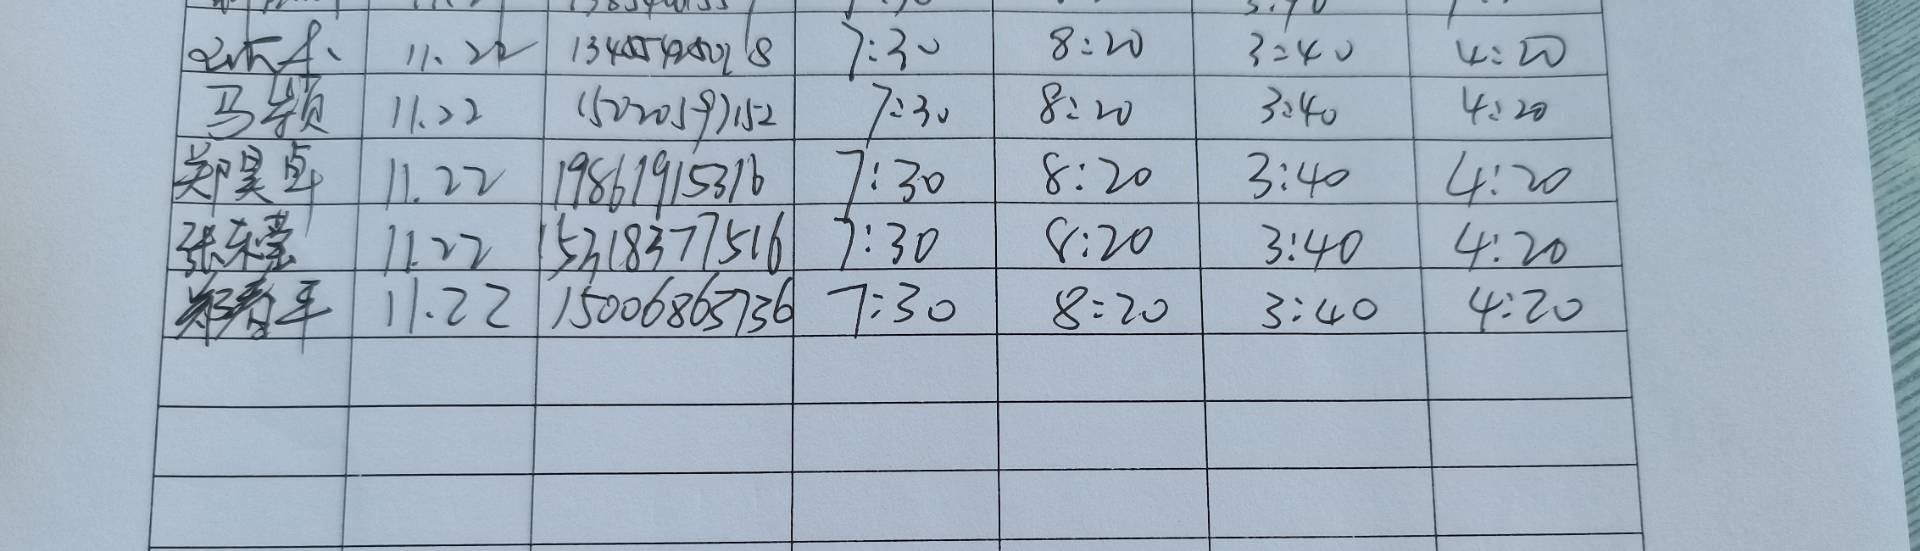 11.22 7:30 8:20 3:40 4:20
马颖 11.22 15020597152 7:30 8:20 3:40 4:20
郑昊卓 11.22 19861915316 7:30 8:20 3:40 4:20
张东莹 11.22 15318377516 7:30 8:20 3:40 4:20
郑春平 11.22 15006865736 7:30 8:20 3:40 4:20